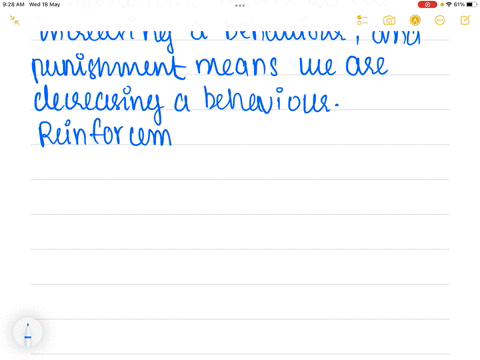 9:28 AM Wed 18 May
61%
increasing a behaviour, and
punishment means we are
decreasing a behaviour.
Reinforcem